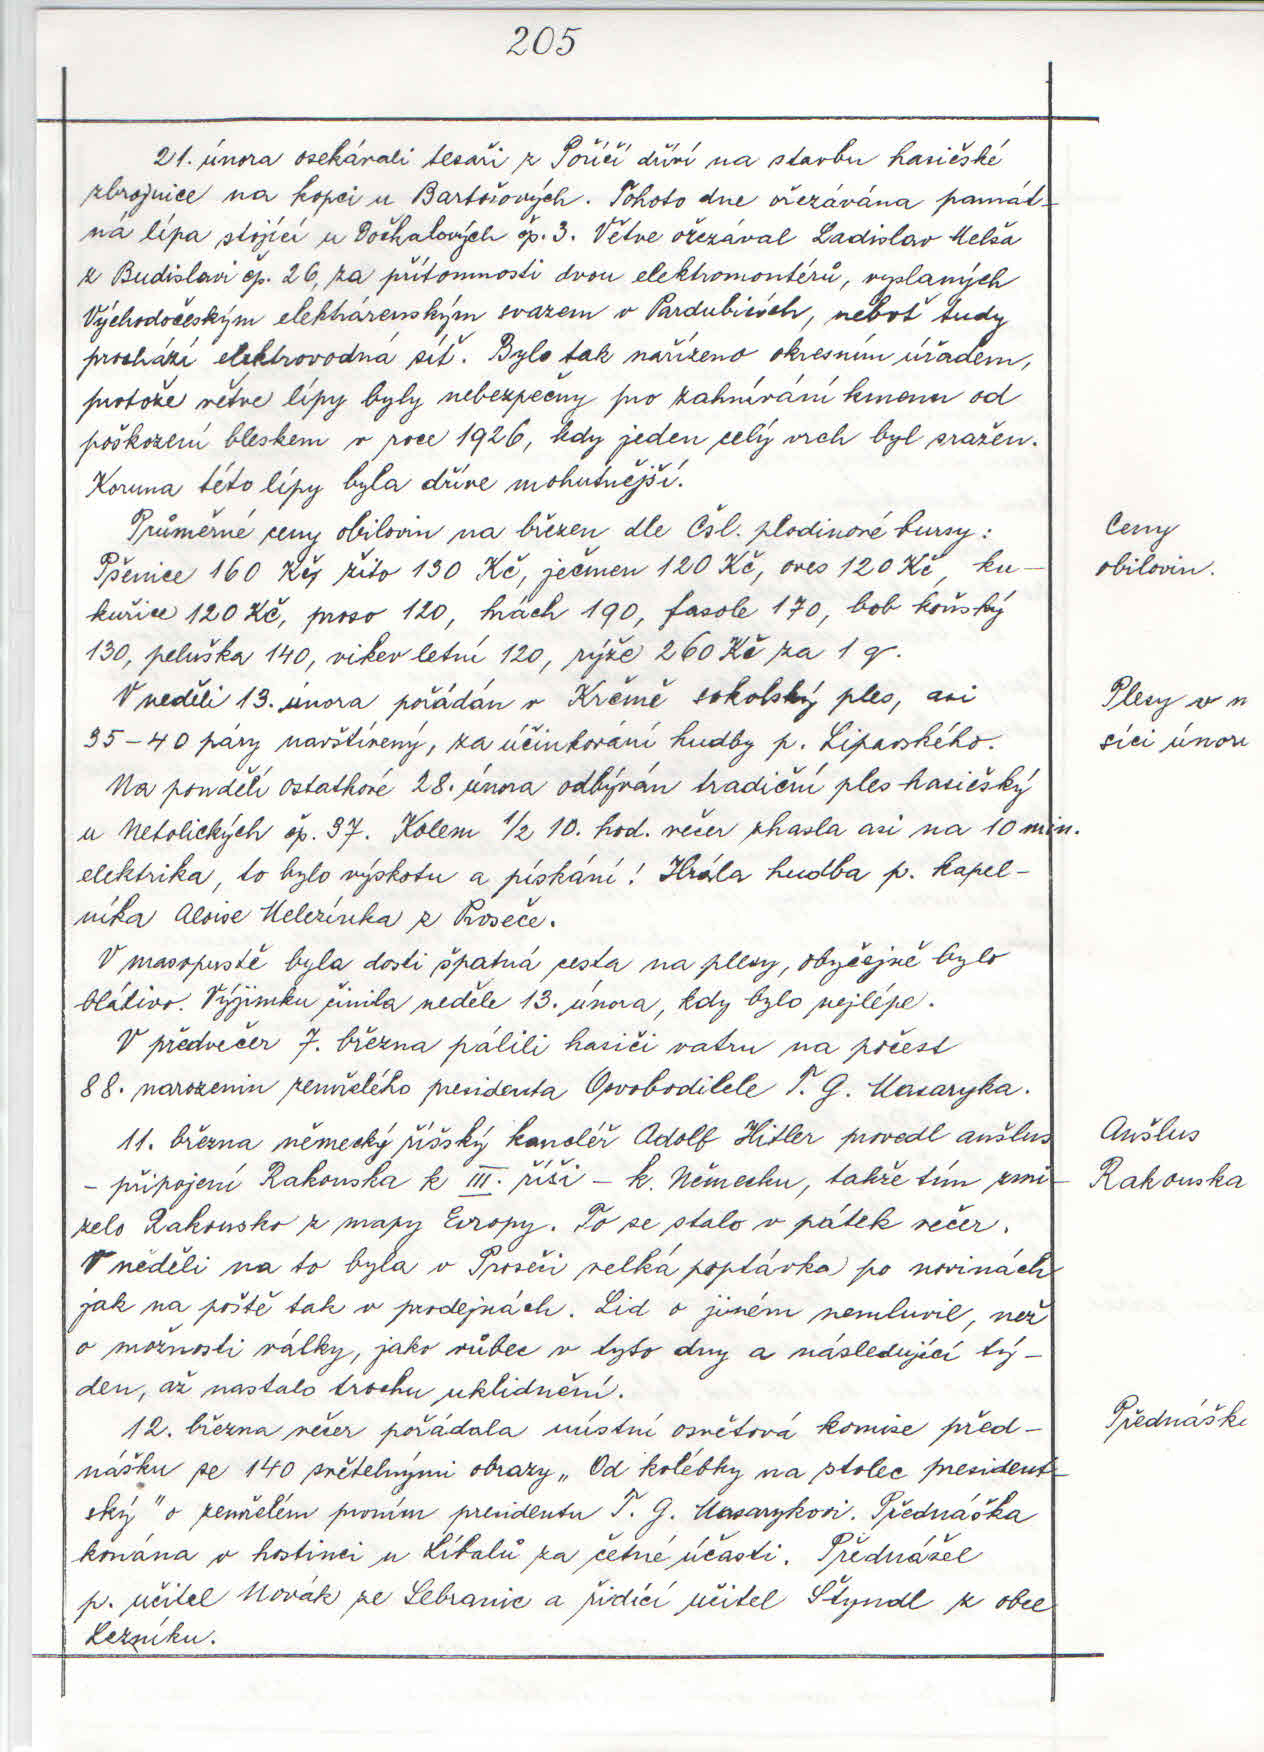 205
21. února osekávali tesaři z Poříčí dříví na stavbu hasičské
zbrojnice na kopci u Bartošových. Tohoto dne ořezávána památ-
ná lípa stojící u Doškalových čp. 3. Větve ořezával Ladislav Melša
z Budislavi čp. 26, za přítomnosti dvou elektromontérů, vyslaných
Východočeským elektrárenským svazem v Pardubicích, neboť tudy
prochází elektrovodná síť. Bylo tak nařízeno okresním úřadem,
protože větve lípy byly nebezpečny pro zahnívání kmenu od
poškození bleskem v roce 1926, kdy jeden celý vrch byl sražen.
Koruna této lípy byla dříve mohutnější.
Průměrné ceny obilovin na březen dle Čsl. plodinové bursy:
Ceny
Pšenice 160 Kč, žito 130 Kč, ječmen 120 Kč, oves 120 Kč, ku-
obilovin.
kuřice 120 Kč, proso 120, hrách 190, fasole 170, bob koňský
130, peluška 140, vikev letní 120, rýže 260 Kč za 1 q.
V neděli 13. února pořádán v Krčmě sokolský ples, asi
Plesy v m
35-40 páry navštívený, za účinkování hudby p. Lipavského.
síci únoru
Na pondělí ostatkové 28. února odbýván tradiční ples hasičský
u Netolických čp. 37. Kolem 1/2 10. hod. večer zhasla asi na 10 min.
elektrika, to bylo výskotu a pískání! Hrála hudba p. kapel-
níka Aloise Melezínka z Proseče.
V masopustě byla dosti špatná cesta na plesy, obyčejně bylo
blátivo. Výjimku činila neděle 13. února, kdy bylo nejlépe.
V předvečer 7. března pálili hasiči vatru na počest
88. narozenin zemřelého presidenta Osvoboditele T. G. Masaryka.
11. března německý říšský kancléř Adolf Hitler provedl anšlus
Anšlus
- připojení Rakouska k III. říši - k Německu, takže tím zmi-
Rakouska
zelo Rakousko z mapy Evropy. To se stalo v pátek večer.
V neděli na to byla v Proseči velká poptávka po novinách
jak na poště tak v prodejnách. Lid o jiném nemluvil, než
o možnosti války, jako vůbec v tyto dny a následující tý-
den, až nastalo trochu uklidnění.
12. března večer pořádala místní osvětová komise před-
Přednášk
nášku se 140 světelnými obrazy „Od kolébky na stolec president-
ský" o zemřelém prvním presidentu T. G. Masarykovi. Přednáška
konána v hostinci u Líbalů za četné účasti. Přednášel
p. učitel Novák ze Sebranic a řídící učitel Štyndl z obce
Lezníku.